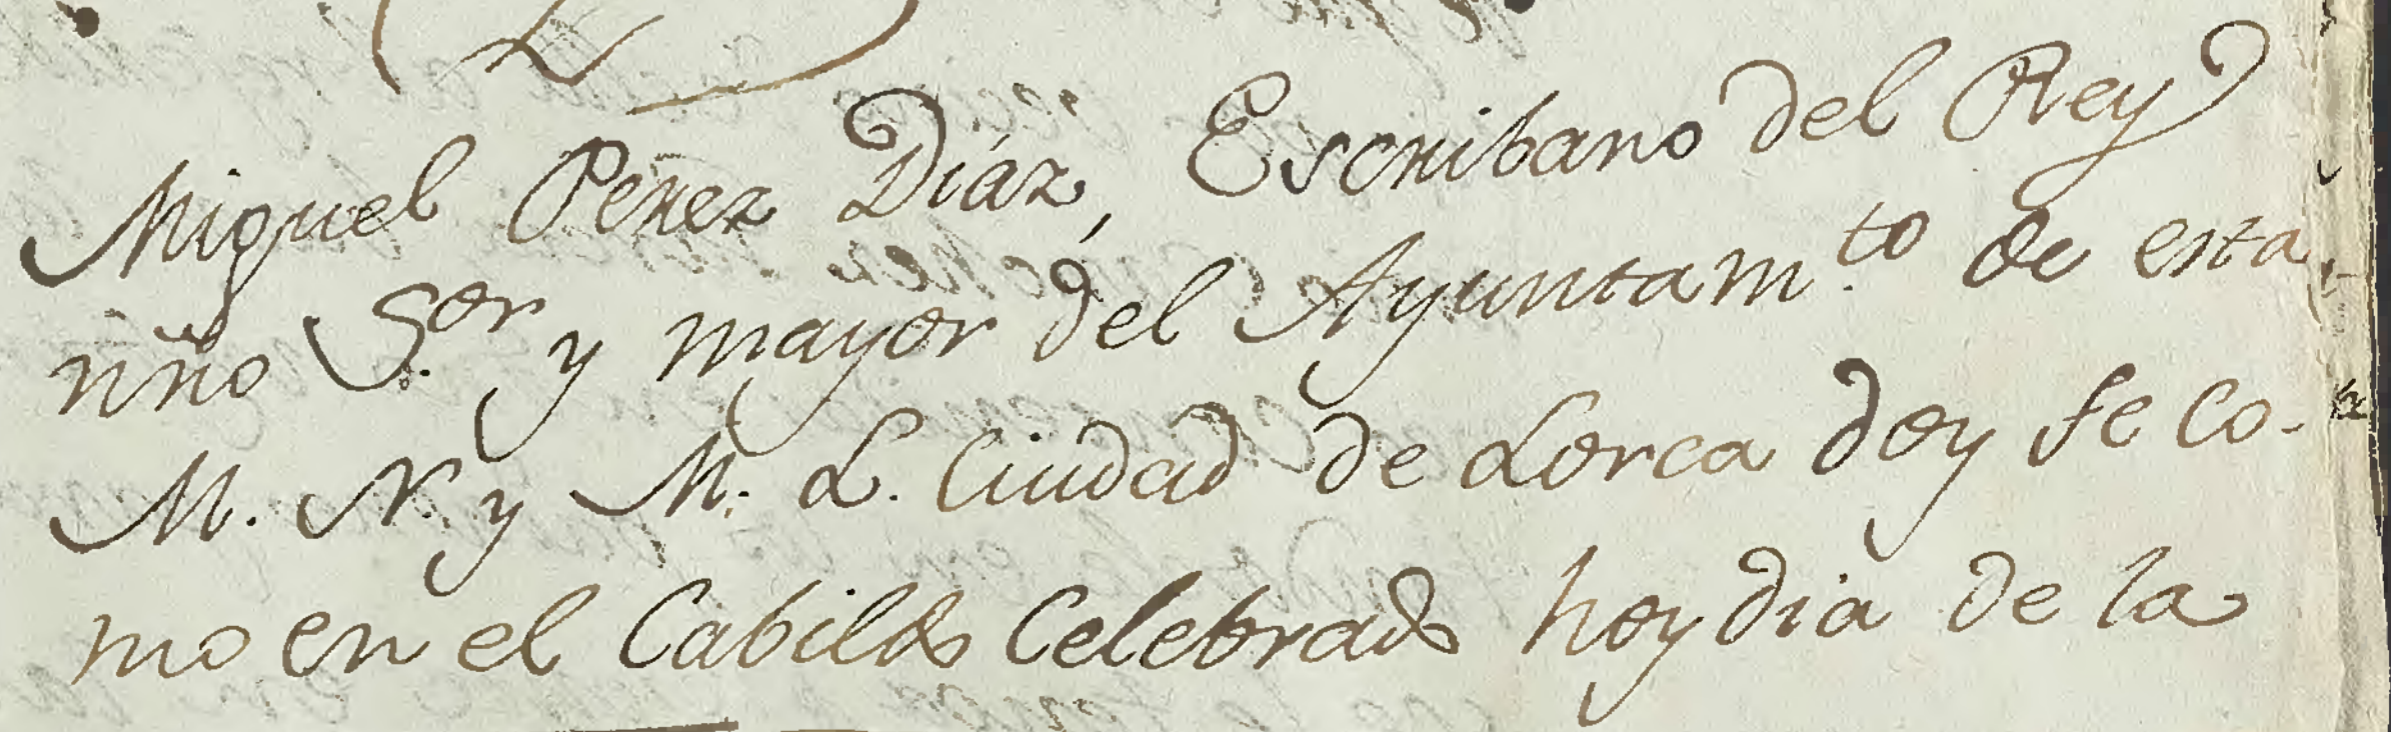 Miguel Perez Díaz, Escribano del Rey
nño S.or y mayor del Ayuntam.to de esta
M. N. y M. L. Ciudad de Lorca doy fe co-
mo en el Cabildo Celebrado hoy dia de la